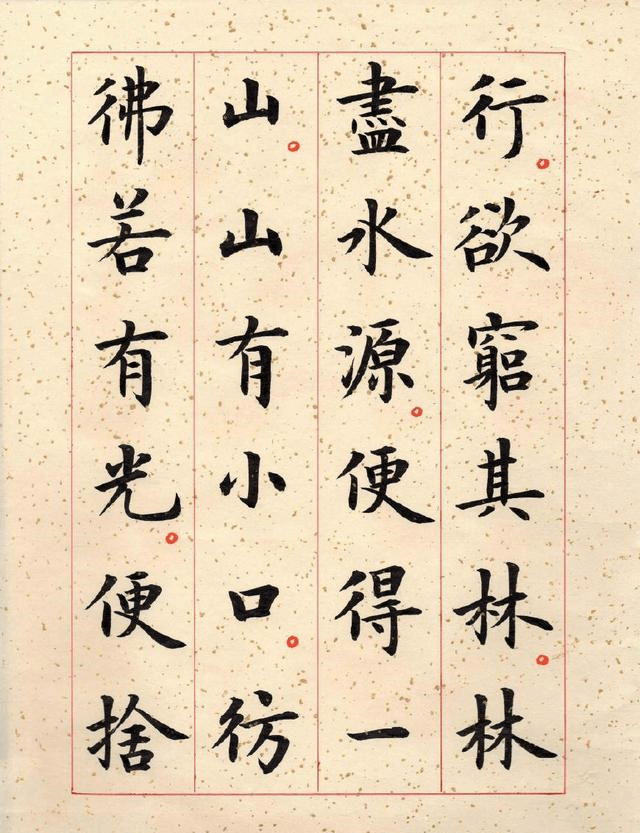 行。欲窮其林。林
盡水源。便得一
山。山有小口。彷
彿若有光。便捨